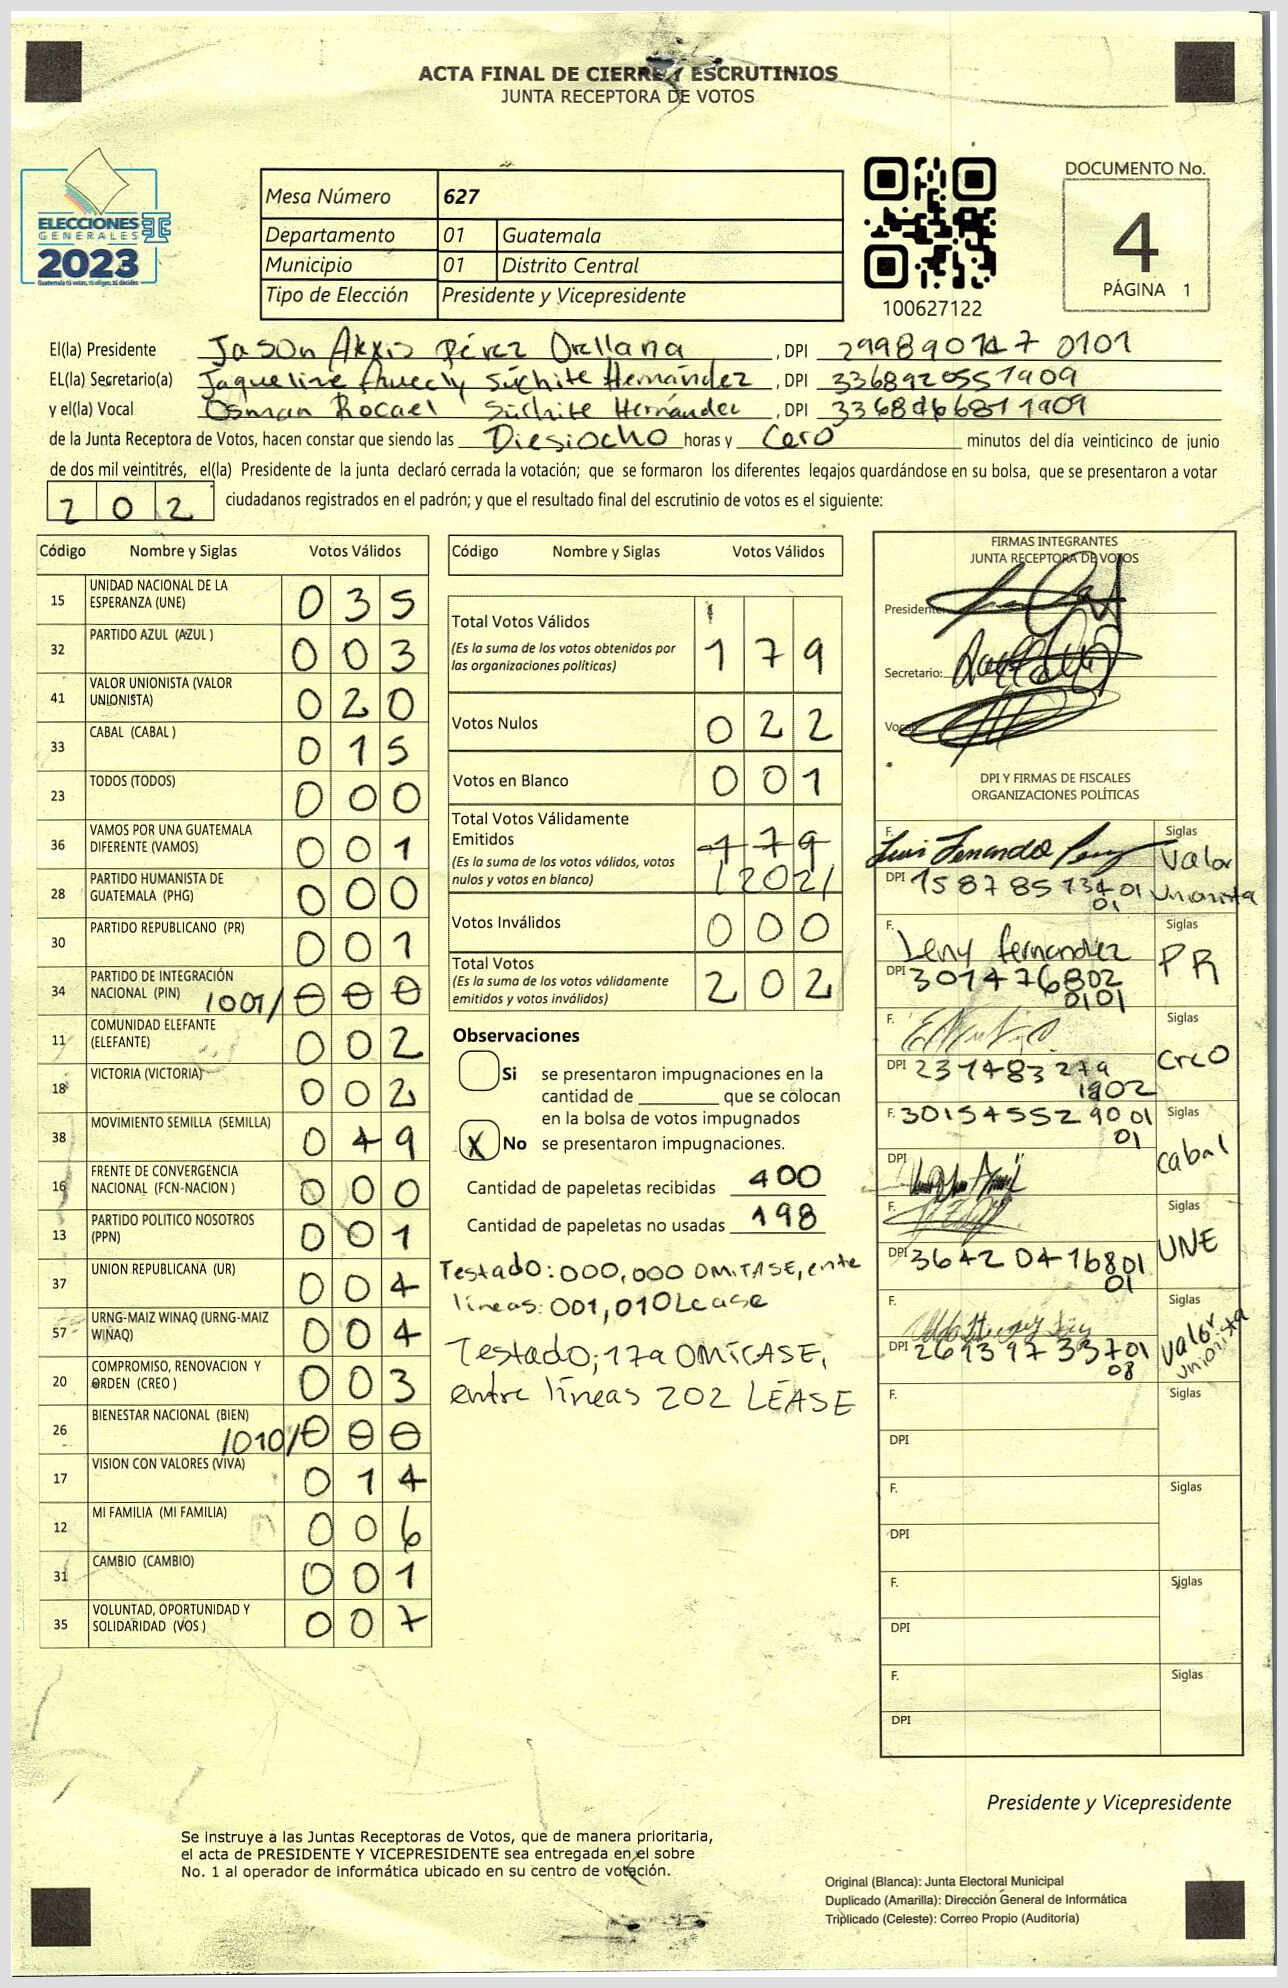 ACTA FINAL DE CIERRE Y ESCRUTINIOS
JUNTA RECEPTORA DE VOTOS
ELECCIONES
GENERALES
2023
Guatemala tú votas, tú eliges, tú decides
Mesa Número 627
Departamento 01 Guatemala
Municipio 01 Distrito Central
Tipo de Elección Presidente y Vicepresidente
100627122
DOCUMENTO No.
4
PÁGINA 1
El(la) Presidente Jason Pérez Orellana , DPI 299890147 0101
EL(la) Secretario(a) Jaqueline Súchite Hernández , DPI 3368920551909
y el(la) Vocal Osman Rocael Súchite Hernández , DPI
de la Junta Receptora de Votos, hacen constar que siendo las Diesiocho horas y Cero minutos del día veinticinco de junio
de dos mil veintitrés, el(la) Presidente de la junta declaró cerrada la votación; que se formaron los diferentes legajos quardándose en su bolsa, que se presentaron a votar
202 ciudadanos registrados en el padrón; y que el resultado final del escrutinio de votos es el siguiente:
Código Nombre y Siglas Votos Válidos
15 UNIDAD NACIONAL DE LA ESPERANZA (UNE) 035
32 PARTIDO AZUL (AZUL ) 003
41 VALOR UNIONISTA (VALOR UNIONISTA) 020
33 CABAL (CABAL ) 015
23 TODOS (TODOS) 000
36 VAMOS POR UNA GUATEMALA DIFERENTE (VAMOS) 001
28 PARTIDO HUMANISTA DE GUATEMALA (PHG) 000
30 PARTIDO REPUBLICANO (PR) 001
34 PARTIDO DE INTEGRACIÓN NACIONAL (PIN) /001/ 000
11 COMUNIDAD ELEFANTE (ELEFANTE) 002
18 VICTORIA (VICTORIA) 002
38 MOVIMIENTO SEMILLA (SEMILLA) 049
16 FRENTE DE CONVERGENCIA NACIONAL (FCN-NACION ) 000
13 PARTIDO POLITICO NOSOTROS (PPN) 001
37 UNION REPUBLICANA (UR) 004
57 URNG-MAIZ WINAQ (URNG-MAIZ WINAQ) 004
20 COMPROMISO, RENOVACION Y ORDEN (CREO ) 003
26 BIENESTAR NACIONAL (BIEN) /010/ 000
17 VISION CON VALORES (VIVA) 014
12 MI FAMILIA (MI FAMILIA) 006
31 CAMBIO (CAMBIO) 001
35 VOLUNTAD, OPORTUNIDAD Y SOLIDARIDAD (VOS ) 007
Código Nombre y Siglas Votos Válidos
Total Votos Válidos 179
(Es la suma de los votos obtenidos por
las organizaciones políticas)
Votos Nulos 022
Votos en Blanco 001
Total Votos Válidamente
Emitidos 179
(Es la suma de los votos válidos, votos
nulos y votos en blanco) /202/
Votos Inválidos 000
Total Votos
(Es la suma de los votos válidamente
emitidos y votos inválidos) 202
Observaciones
Si se presentaron impugnaciones en la
cantidad de ________ que se colocan
en la bolsa de votos impugnados
X No se presentaron impugnaciones.
Cantidad de papeletas recibidas 400
Cantidad de papeletas no usadas 198
Testado: 000,000 OMITASE, ente
líneas: 001, 010 Lease
Testado; 179 OMÍTASE,
entre líneas 202 LÉASE
FIRMAS INTEGRANTES
JUNTA RECEPTORA DE VOTOS
Presidente:
Secretario:
Vocal
DPI Y FIRMAS DE FISCALES
ORGANIZACIONES POLÍTICAS
F. Luis Fernando Siglas Valor
DPI 1587857340101 Unionista
F. Leny fernandez Siglas PR
DPI 3014768020101
F. Siglas Creo
DPI 2374832791902
F. 3015455290101 01 Siglas Cabal
DPI
F. Siglas UNE
DPI 3642041680101
F. Siglas Valor Unionista
DPI 2613973370108
F. Siglas
DPI
F. Siglas
DPI
F. Siglas
DPI
F. Siglas
DPI
Presidente y Vicepresidente
Se instruye a las Juntas Receptoras de Votos, que de manera prioritaria,
el acta de PRESIDENTE Y VICEPRESIDENTE sea entregada en el sobre
No. 1 al operador de informática ubicado en su centro de votación.
Original (Blanca): Junta Electoral Municipal
Duplicado (Amarilla): Dirección General de Informática
Triplicado (Celeste): Correo Propio (Auditoría)